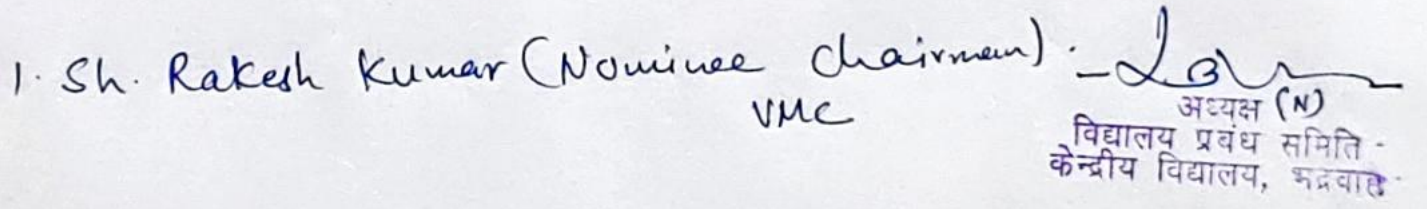 1. Sh. Rakesh Kumar (Nominee Chairman).
VMC
अध्यक्ष (N)
विद्यालय प्रबंध समिति
केन्द्रीय विद्यालय, भद्रवाह